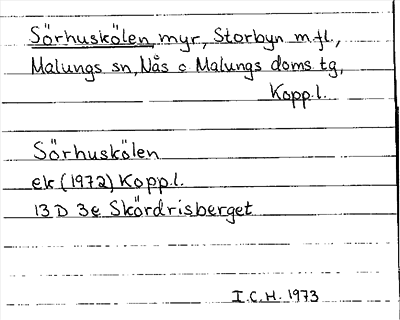 Sörhuskölen myr, Storbyn m.fl.,
Malungs sn, Nås o Malungs doms.tg,
Kopp.l.
Sörhuskölen
ek (1972) Kopp.l.
13 D 3e Skördrisberget
I.C.H. 1973